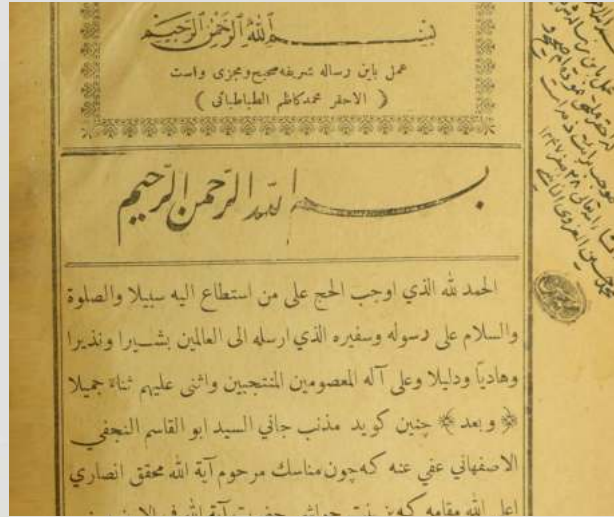 بسم الله الرحمن الرحيم
عمل باين رساله شريفه صحيح ومجزى واست
( الاحقر محمد كاظم الطباطبائى )
بسم الله الرحمن الرحيم
الحمد لله الذي اوجب الحج على من استطاع اليه سبيلا والصلوة
والسلام على رسوله وسفيره الذي ارسله الى العالمين بشيرا ونذيرا
وهادياً ودليلا وعلى آله المعصومين المنتجبين واثنى عليهم ثناءً جميلا
﴿ و بعد ﴾ چنين كويد مذنب جاني السيد ابو القاسم النجفي
الاصفهاني عفي عنه كه چون مناسك مرحوم آية الله محقق انصاري
اعلى الله مقامه كه